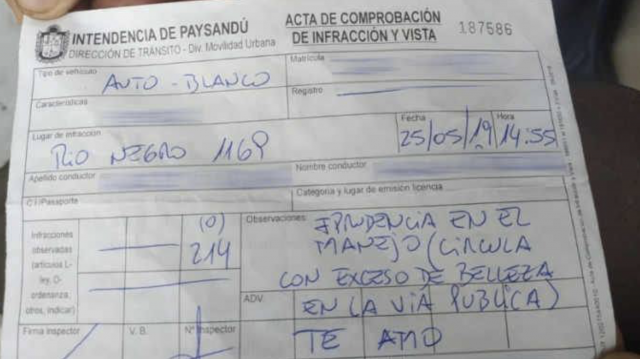 INTENDENCIA DE PAYSANDÚ
DIRECCIÓN DE TRÁNSITO - Div. Movilidad Urbana
ACTA DE COMPROBACIÓN
DE INFRACCIÓN Y VISTA
187586
Tipo de vehículo
AUTO - BLANCO
Matrícula
Características
Registro
Lugar de infracción
RIO NEGRO 1169
Fecha
25/05/19
Hora
14:55
Apellido conductor
Nombre conductor
C.I/Pasaporte
Categoría y lugar de emisión licencia
Infracciones
observadas
(artículos L-
ley, O-
ordenanza,
otros, indicar)
(0)
214
Observaciones
IPRUDENCIA EN EL
MANEJO (CIRCULA
CON EXCESO DE BELLEZA
ADV.
EN LA VIA PUBLICA)
TE AMO
Firma Inspector
V. B.
Nº Inspector